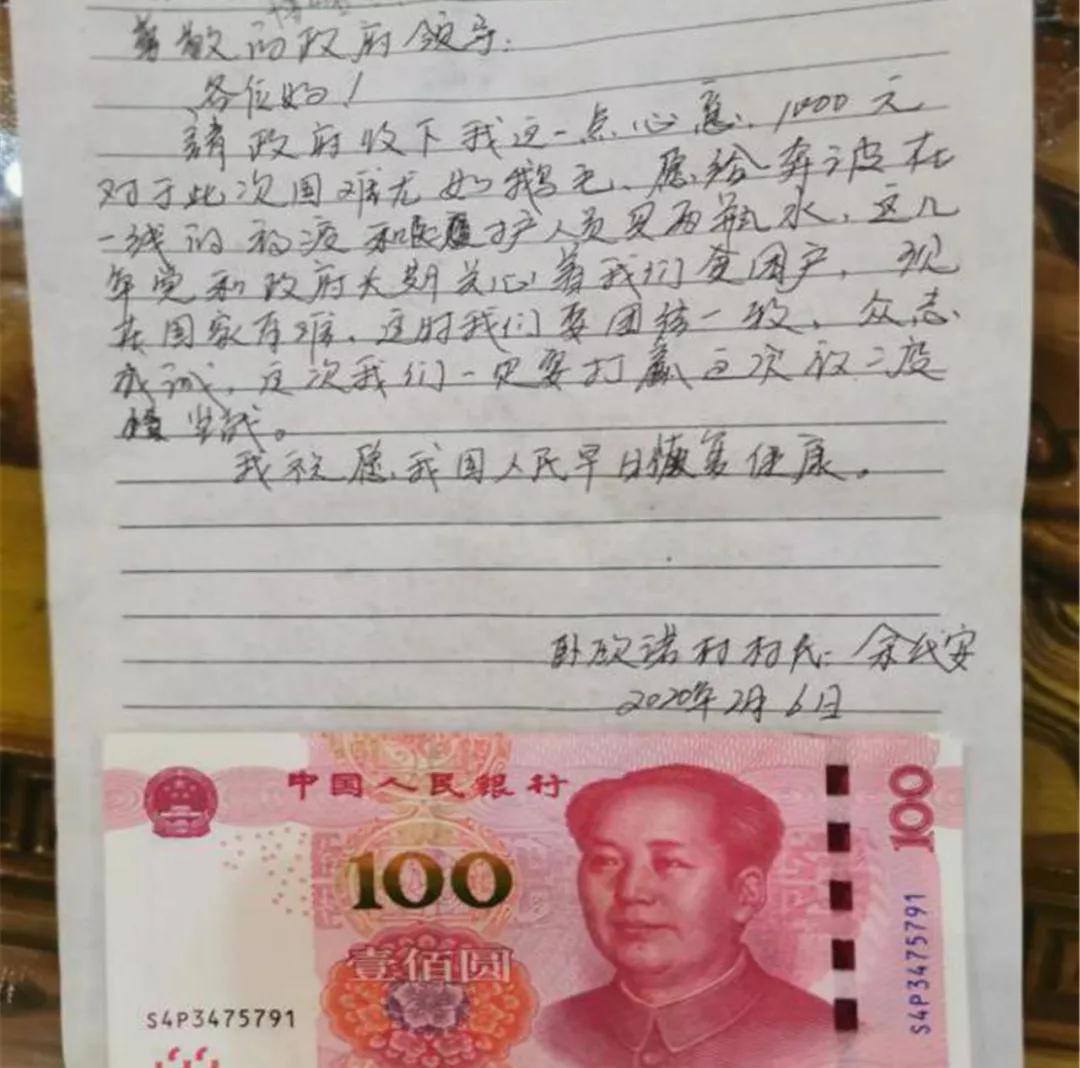 尊敬的政府领导:
各位好!
請政府收下我这一点心意、1000元
对于此次国难尤如鹅毛、愿给奔波在
一线的和医护人员买两瓶水、这几
年党和政府长期关心着我们贫困户，现
在国家有难、这时我们要团结一致、众志
成诚，这次我们一定要打赢这次
坚战。
我祝愿我国人民早日恢复健康。
卧欧诺村村民: 余
2020年2月6日
中国人民银行
100
100
壹佰圆
S4P3475791
S4P3475791